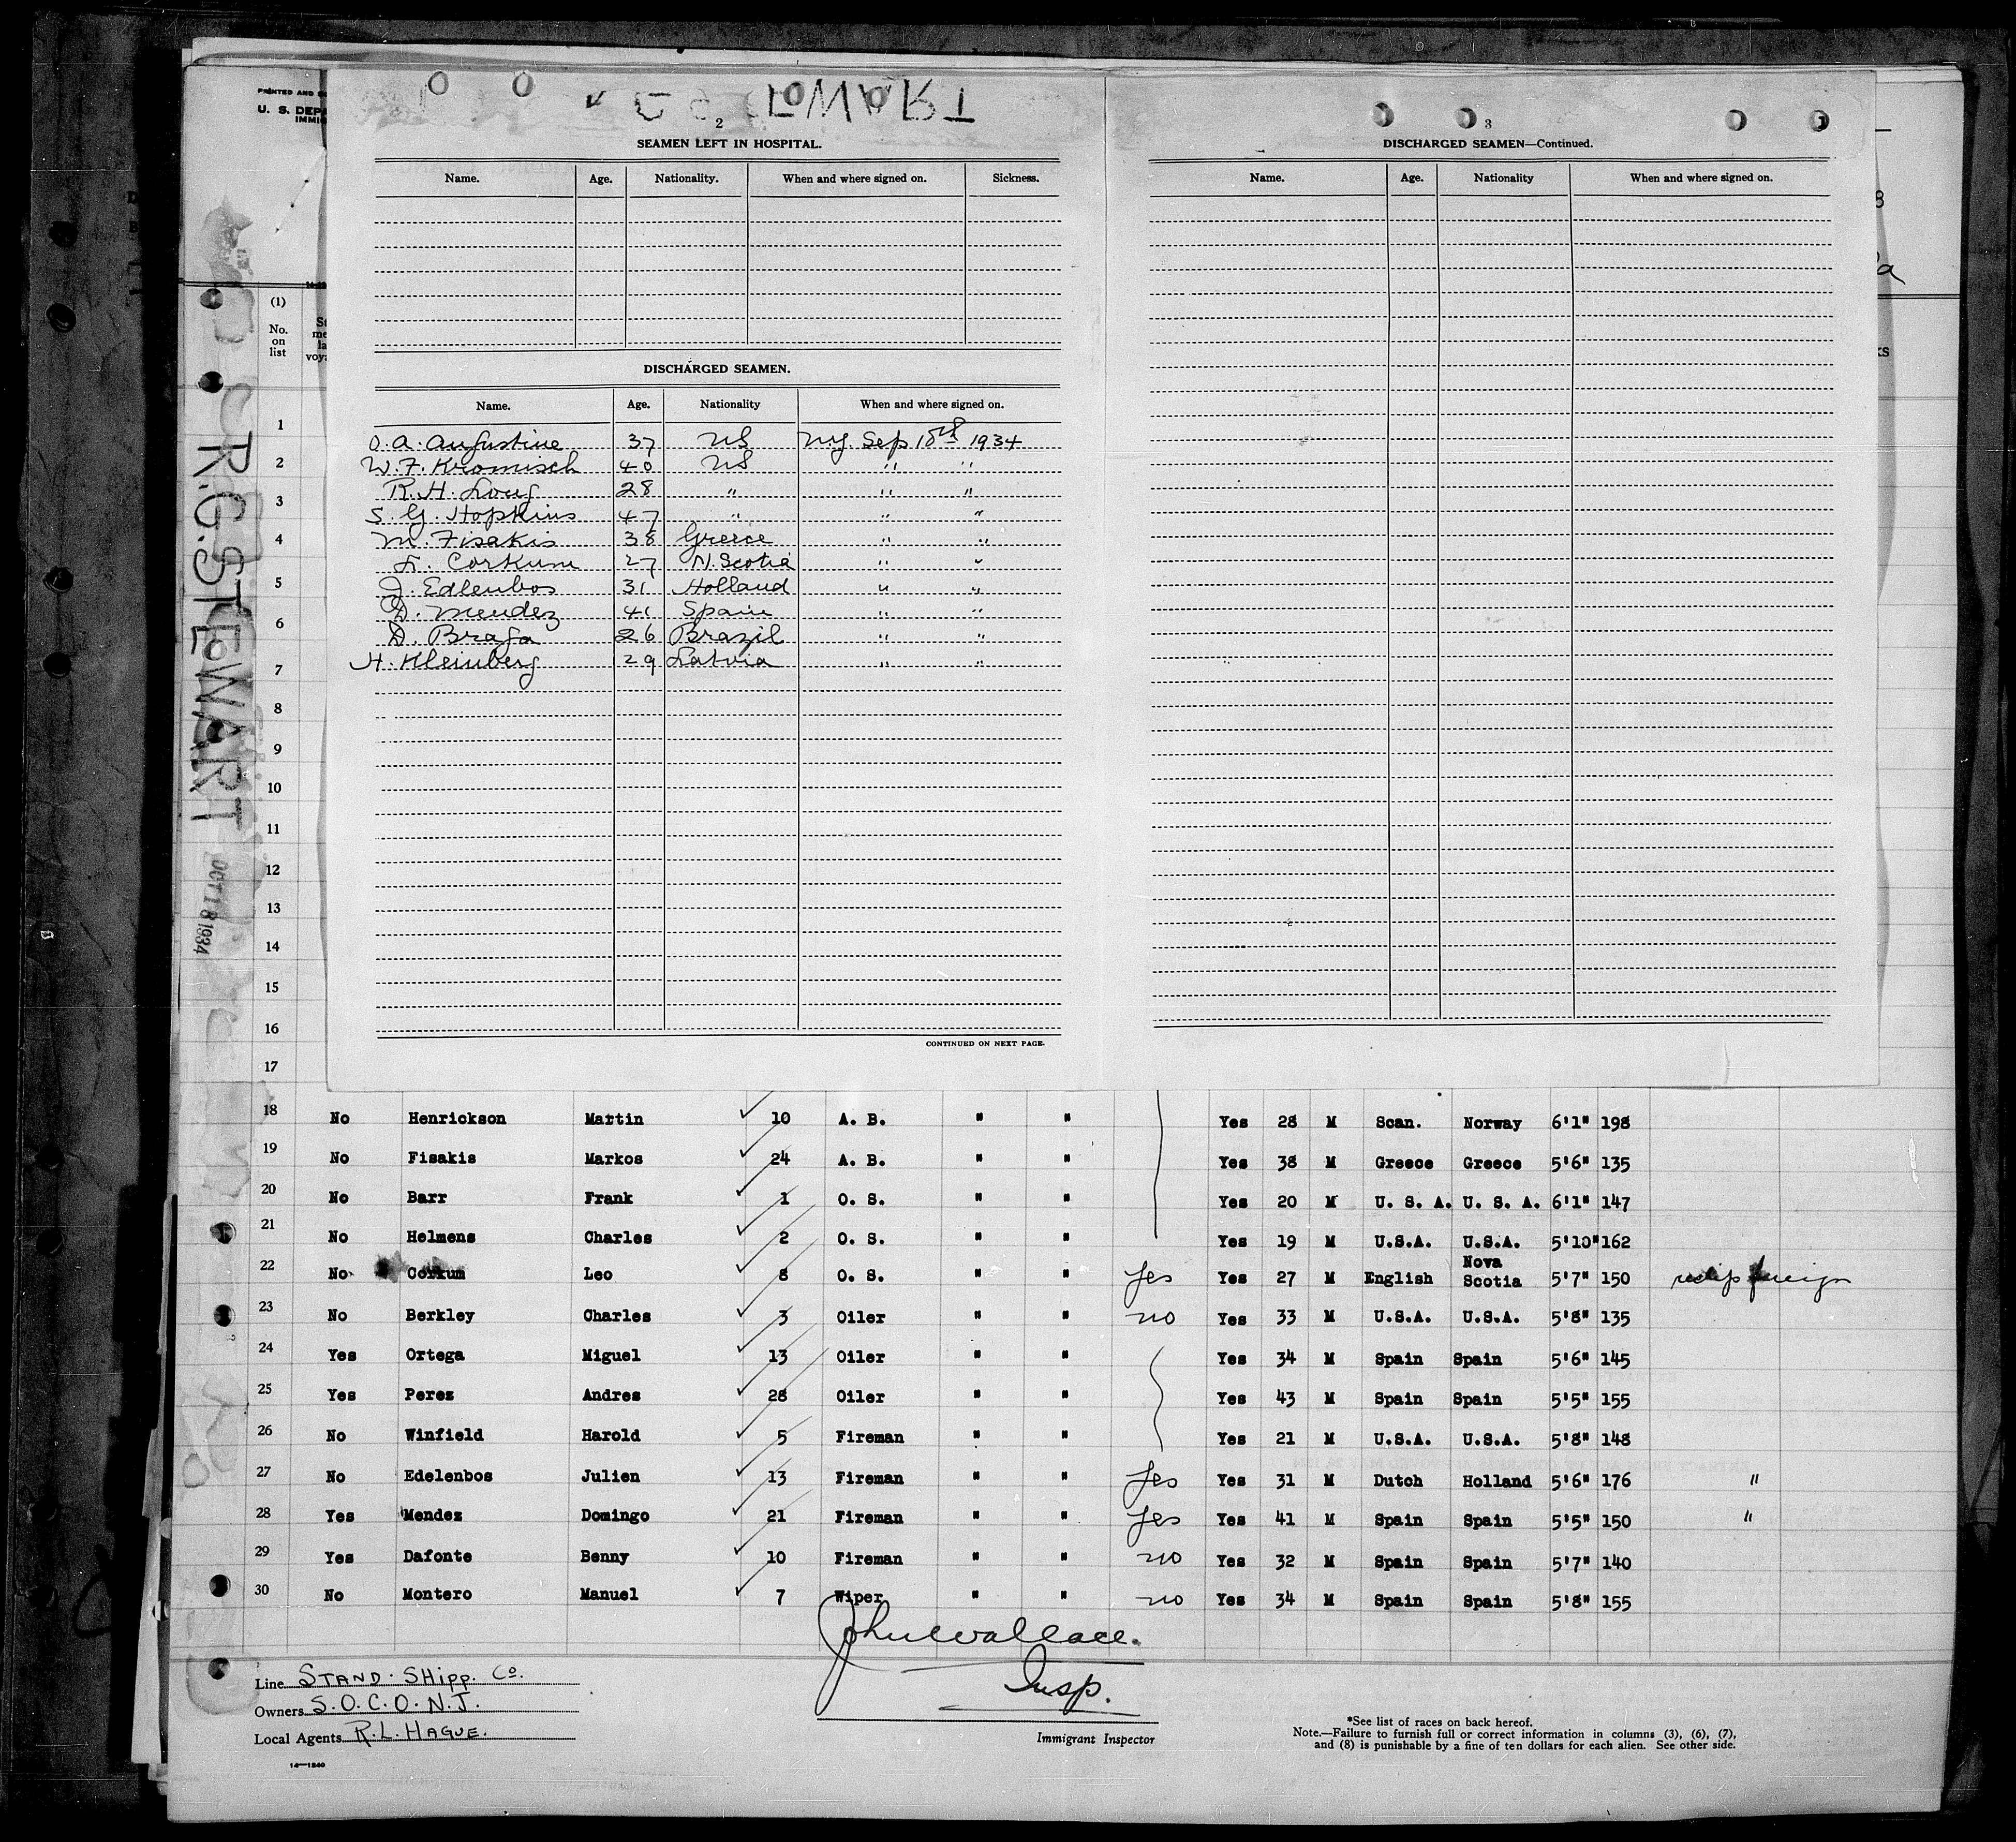 PRINTED AND
U. S. DEP
IMMIG
R.G. STEWART
OCT 18 1934
STEWART
2
SEAMEN LEFT IN HOSPITAL.
Name. Age. Nationality. When and where signed on. Sickness.
DISCHARGED SEAMEN.
Name. Age. Nationality When and where signed on.
O. A. Augustine 37 US N.Y. Sep 18th 1934
W. F. Kromisch 40 US " "
R. H. Long 28 " " "
S. G. Hopkins 47 " " "
M. Fisakis 38 Greece " "
L. Corkum 27 N. Scotia " "
J. Edlenbos 31 Holland " "
D. Mendez 41 Spain " "
D. Braga 26 Brazil " "
H. Kleinberg 29 Latvia " "
CONTINUED ON NEXT PAGE.
3
DISCHARGED SEAMEN—Continued.
Name. Age. Nationality When and where signed on.
(1)
No.
on
list
1
2
3
4
5
6
7
8
9
10
11
12
13
14
15
16
17
18 No Henrickson Martin 10 A. B. " " Yes 28 M Scan. Norway 6'1" 198
19 No Fisakis Markos 24 A. B. " " Yes 38 M Greece Greece 5'6" 135
20 No Barr Frank 1 O. S. " " Yes 20 M U. S. A. U. S. A. 6'1" 147
21 No Helmens Charles 2 O. S. " " Yes 19 M U.S.A. U.S.A. 5'10" 162
22 No Corkum Leo 8 O. S. " " Yes Yes 27 M English Nova Scotia 5'7" 150 reship foreign
23 No Berkley Charles 3 Oiler " " no Yes 33 M U.S.A. U.S.A. 5'8" 135
24 Yes Ortega Miguel 13 Oiler " " Yes 34 M Spain Spain 5'6" 145
25 Yes Perez Andres 28 Oiler " " Yes 43 M Spain Spain 5'5" 155
26 No Winfield Harold 5 Fireman " " Yes 21 M U.S.A. U.S.A. 5'8" 148
27 No Edelenbos Julien 13 Fireman " " Yes Yes 31 M Dutch Holland 5'6" 176 "
28 Yes Mendez Domingo 21 Fireman " " Yes Yes 41 M Spain Spain 5'5" 150 "
29 Yes Dafonte Benny 10 Fireman " " no Yes 32 M Spain Spain 5'7" 140
30 No Montero Manuel 7 Wiper " " no Yes 34 M Spain Spain 5'8" 155
John Wallace.
Insp.
Immigrant Inspector
Line STAND. SHIPP. Co.
Owners S.O.C.O.N.J.
Local Agents R.L. HAGUE.
14—1240
*See list of races on back hereof.
Note.—Failure to furnish full or correct information in columns (3), (6), (7),
and (8) is punishable by a fine of ten dollars for each alien. See other side.